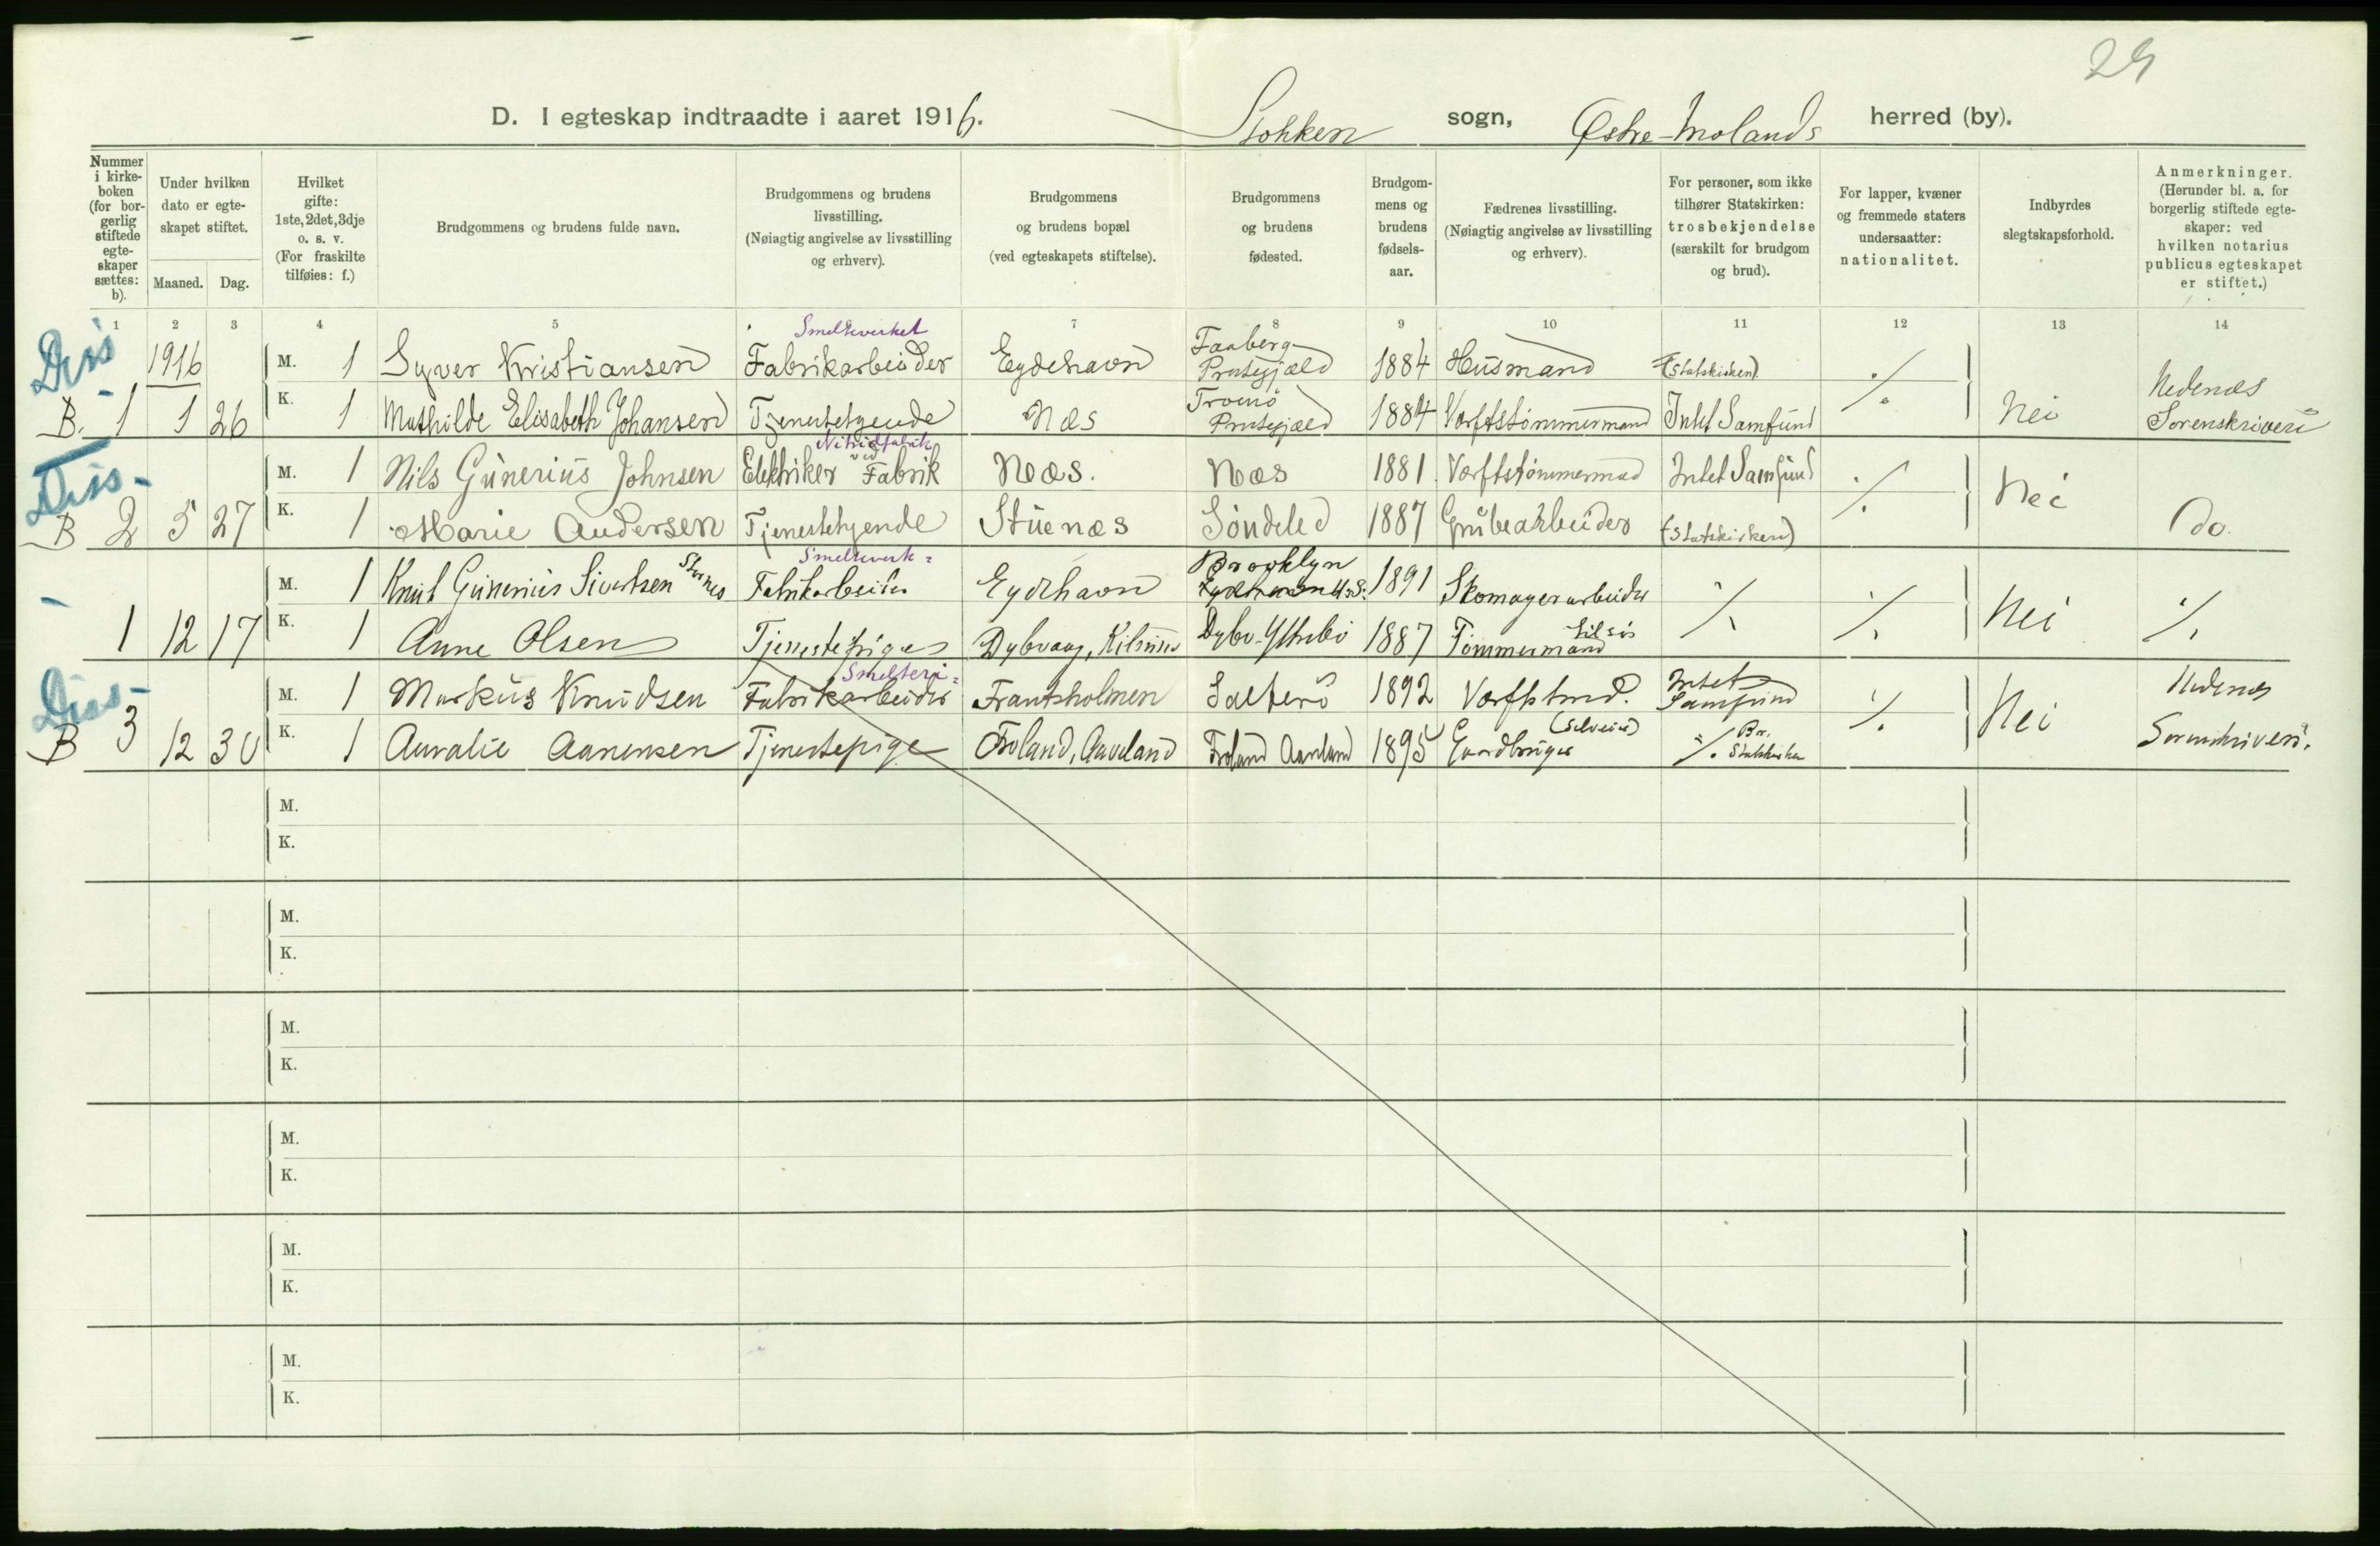 29
D. I egteskap indtraadte i aaret 1916. Stokken sogn, Østre-Molands herred (by).
Nummer i kirke-boken (for bor-gerlig stiftede egte-skaper sættes: b).
Under hvilken dato er egte-skapet stiftet.
Maaned. Dag.
Hvilket gifte: 1ste, 2det, 3dje o. s. v. (For fraskilte tilføies: f.)
Brudgommens og brudens fulde navn.
Brudgommens og brudens livsstilling. (Nøiagtig angivelse av livsstilling og erhverv).
Brudgommens og brudens bopæl (ved egteskapets stiftelse).
Brudgommens og brudens fødested.
Brudgom-mens og brudens fødsels-aar.
Fædrenes livsstilling. (Nøiagtig angivelse av livsstilling og erhverv).
For personer, som ikke tilhører Statskirken: trosbekjendelse (særskilt for brudgom og brud).
For lapper, kvæner og fremmede staters undersaatter: nationalitet.
Indbyrdes slegtskapsforhold.
Anmerkninger. (Herunder bl. a. for borgerlig stiftede egte-skaper: ved hvilken notarius publicus egteskapet er stiftet.)
1 2 3 4 5 6 7 8 9 10 11 12 13 14
Diss- Smelteverket Faaberg
1916 M. 1 Syver Kristiansen Fabrikarbeider Eydehavn Prestegjæld 1884 Husmand (Statskirken) ./. Nedenæs
Tromø
B. 1 1 26 K. 1 Mathilde Elisabeth Johansen Tjenestetgende Næs Prestegjæld 1884 Værftstømmermand Intet Samfund Nei Sorenskriveri
Diss- Nitridfabrik
M. 1 Nils Gunerius Johnsen Elektriker ved Fabrik Næs. Næs 1881 Værftstømmermad Intet Samfund ./. Nei
B 2 5 27 K. 1 Marie Andersen Tjenestetgende Stuenæs Søndeled 1887 Grubearbeider (Statskirken) Do.
Smelteverk= Brooklyn
M. 1 Knut Gunerius Sivertsen Eydehavn 1891 Skomagerarbeider ./. ./. Nei ./.
1 12 17 K. 1 Anne Olsen Tjenestepige Dybvaag, 1887 Tømmermand
Diss- Smelteri= Intet
M. 1 Markus Knudsen Fabrikarbeider Frantsholmen Salterø 1892 Samfund ./. Nei Nedenæs
(Selveier)
B 3 12 30 K. 1 Auralie Aanensen Tjenestepige Froland, Froland 1895 Gaardbruger ./. Statskirken Sorenskriveri.
M.
K.
M.
K.
M.
K.
M.
K.
M.
K.
M.
K.